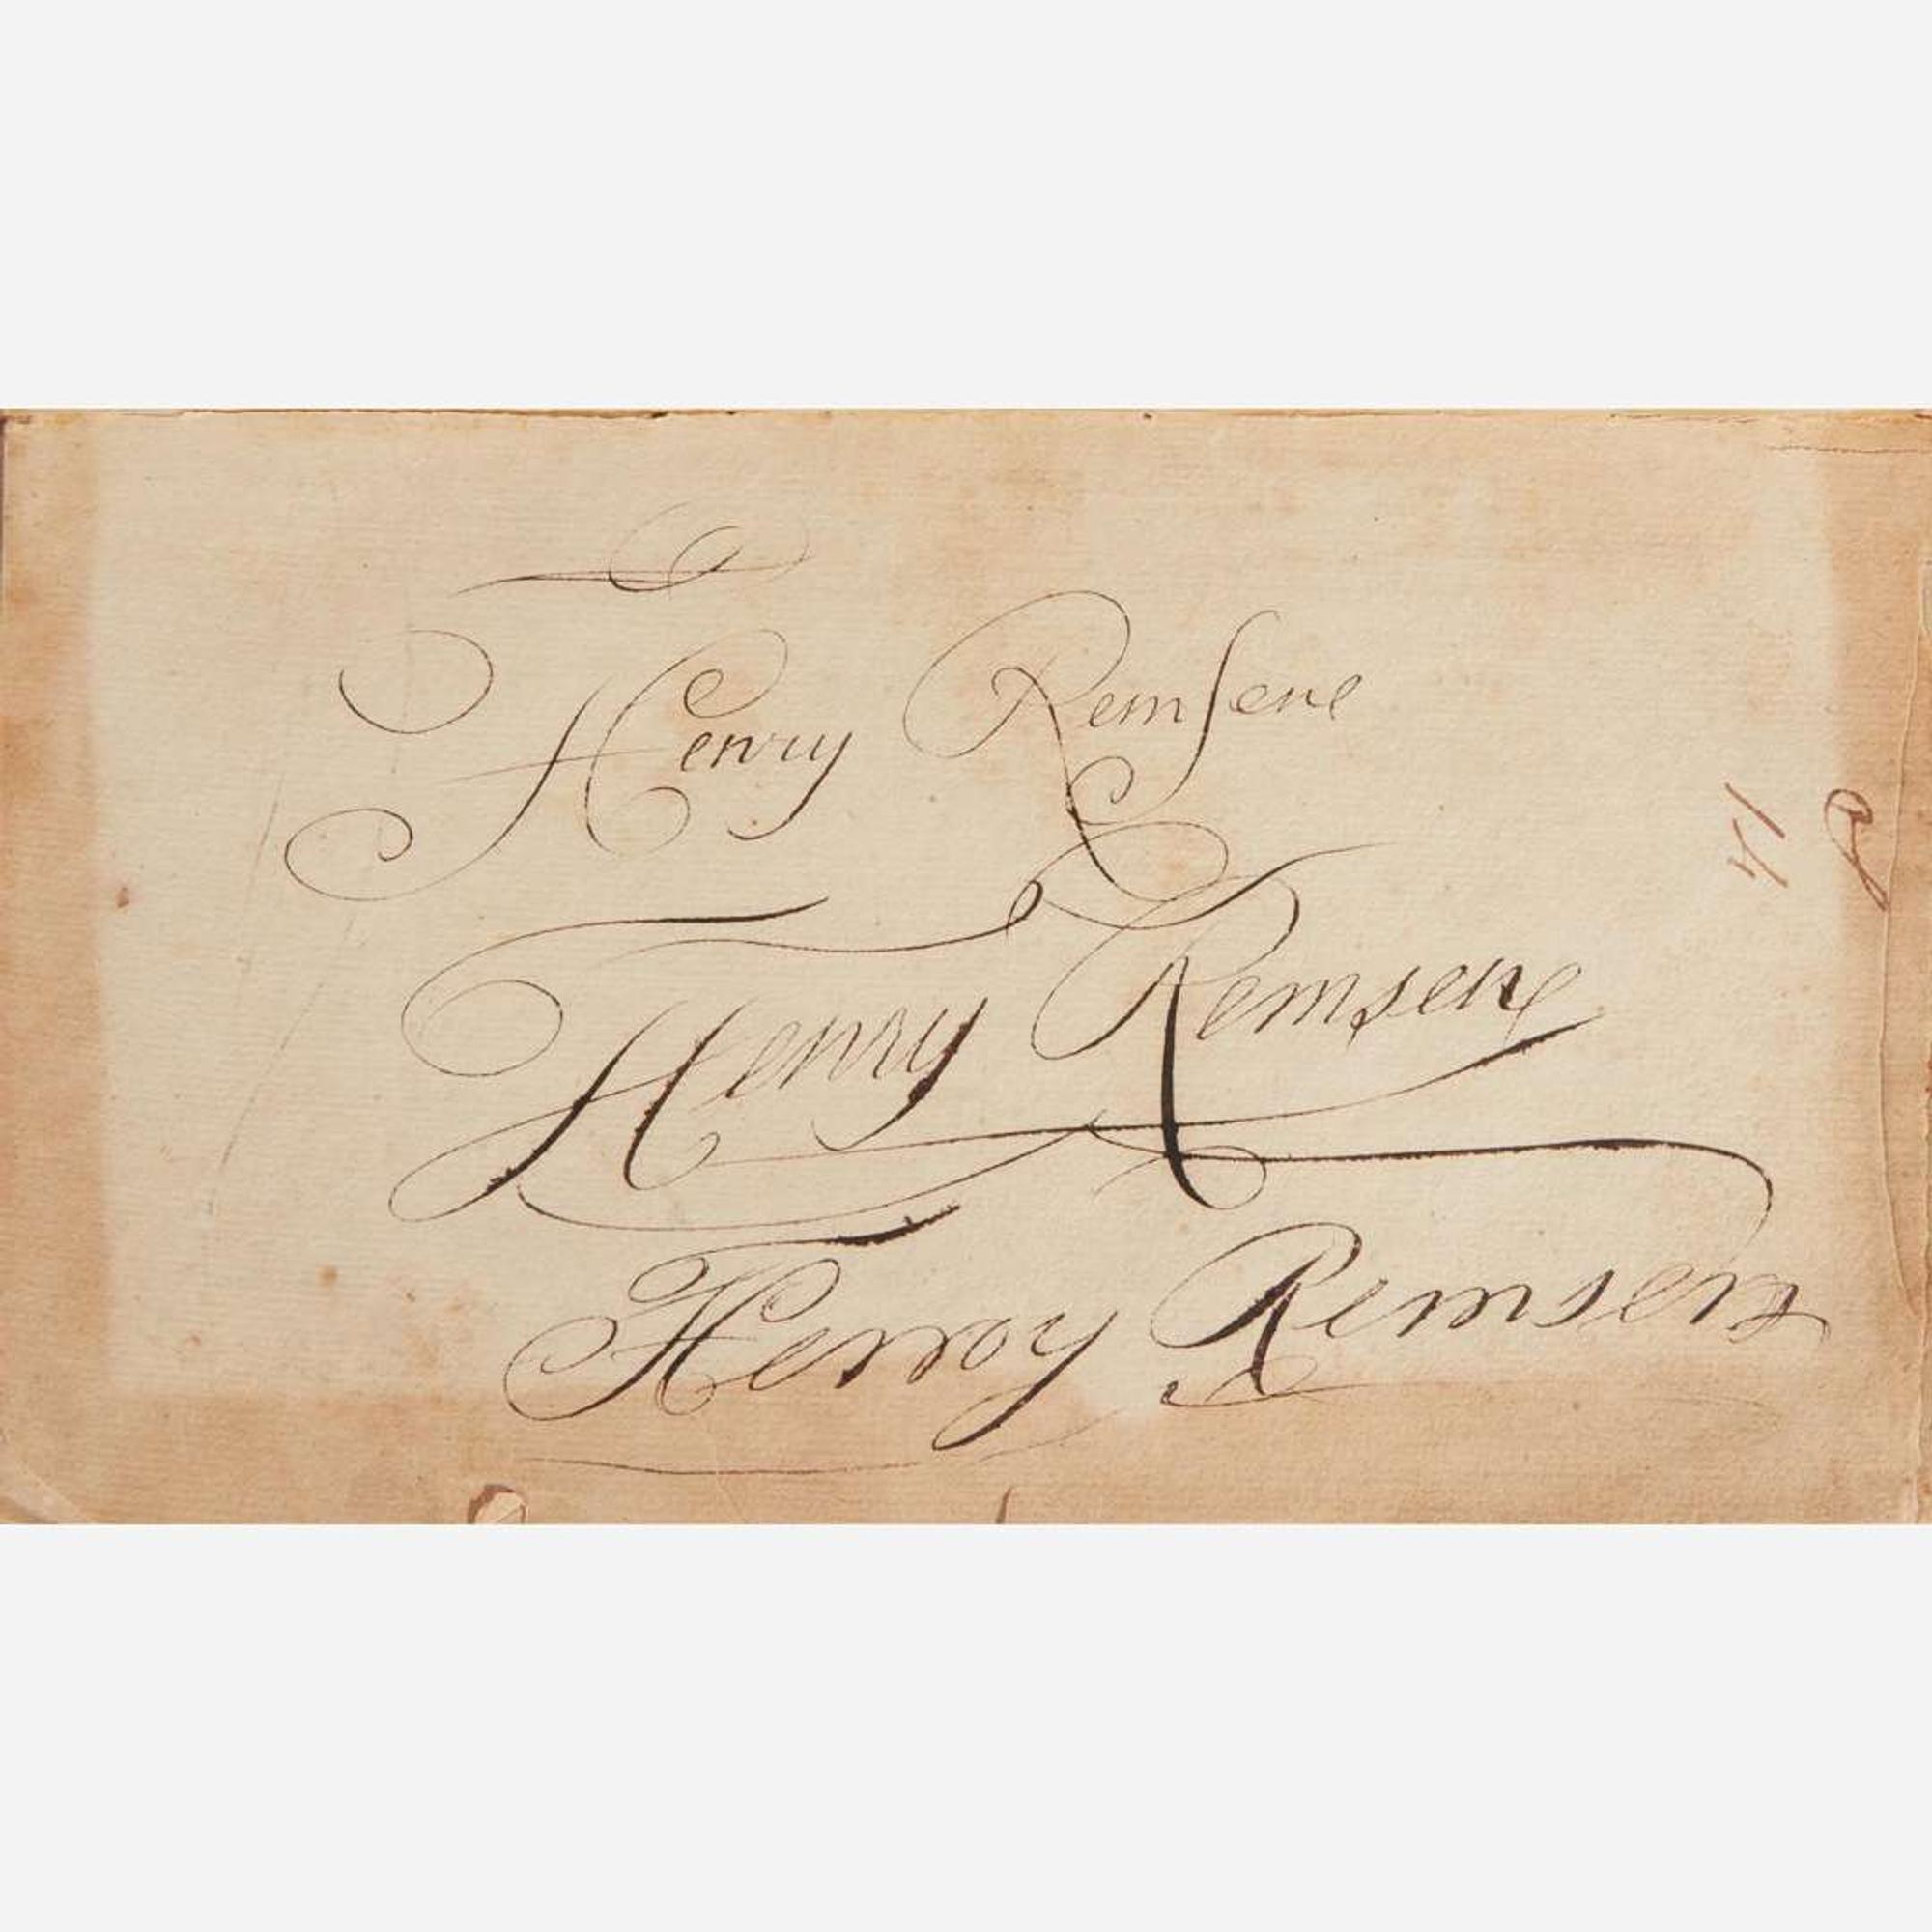 Henry Remsene
Henry Remsene
Henry Remsen